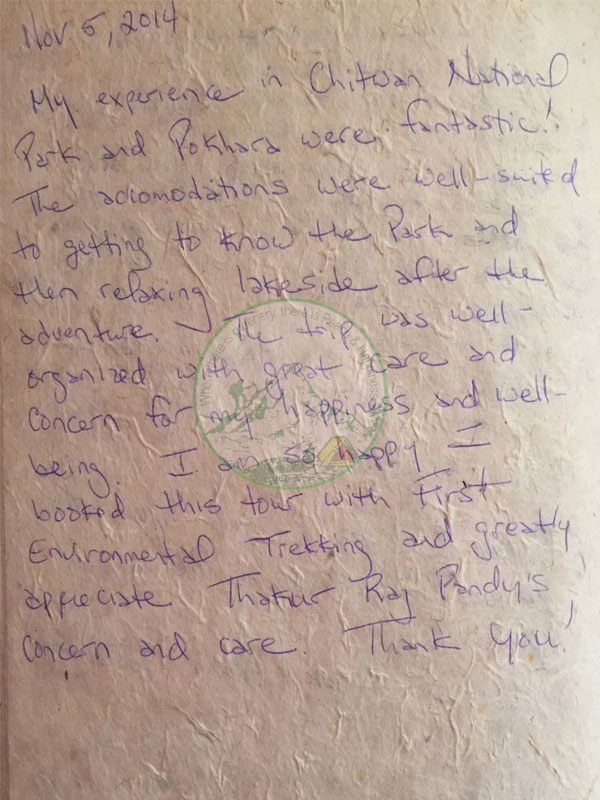 Nov 5, 2014
My experience in Chitwan National
Park and Pokhara were fantastic!
The accomodations were well-suited
to getting to know the Park and
then relaxing lakeside after the
adventure. The trip was well-
organized with great care and
concern for my happiness and well-
being. I am so happy I
booked this tour with First
Environmental Trekking and greatly
appreciate Thakur Raj Pandy's
concern and care. Thank you!